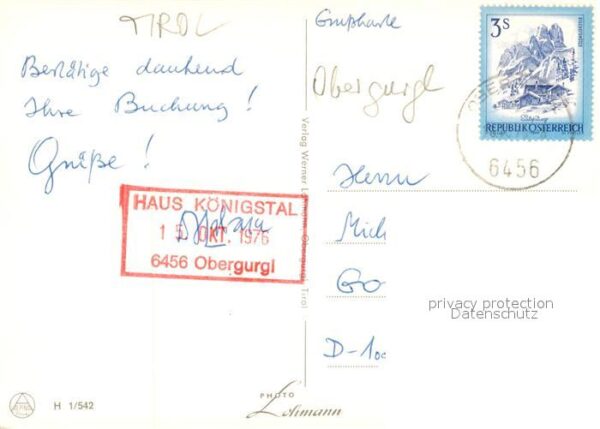 TIROL
Grußkarte
Bestätige dankend
Ihre Buchung!
Grüße!
HAUS KÖNIGSTAL
1 5. OKT. 1976
6456 Obergurgl
Obergurgl
3S
REPUBLIK ÖSTERREICH
6456
Herrn
Mich
Go
D-10
privacy protection
Datenschutz
Verlag Werner Lohmann, Obergurgl, Tirol
H 1/542
PHOTO
Lohmann